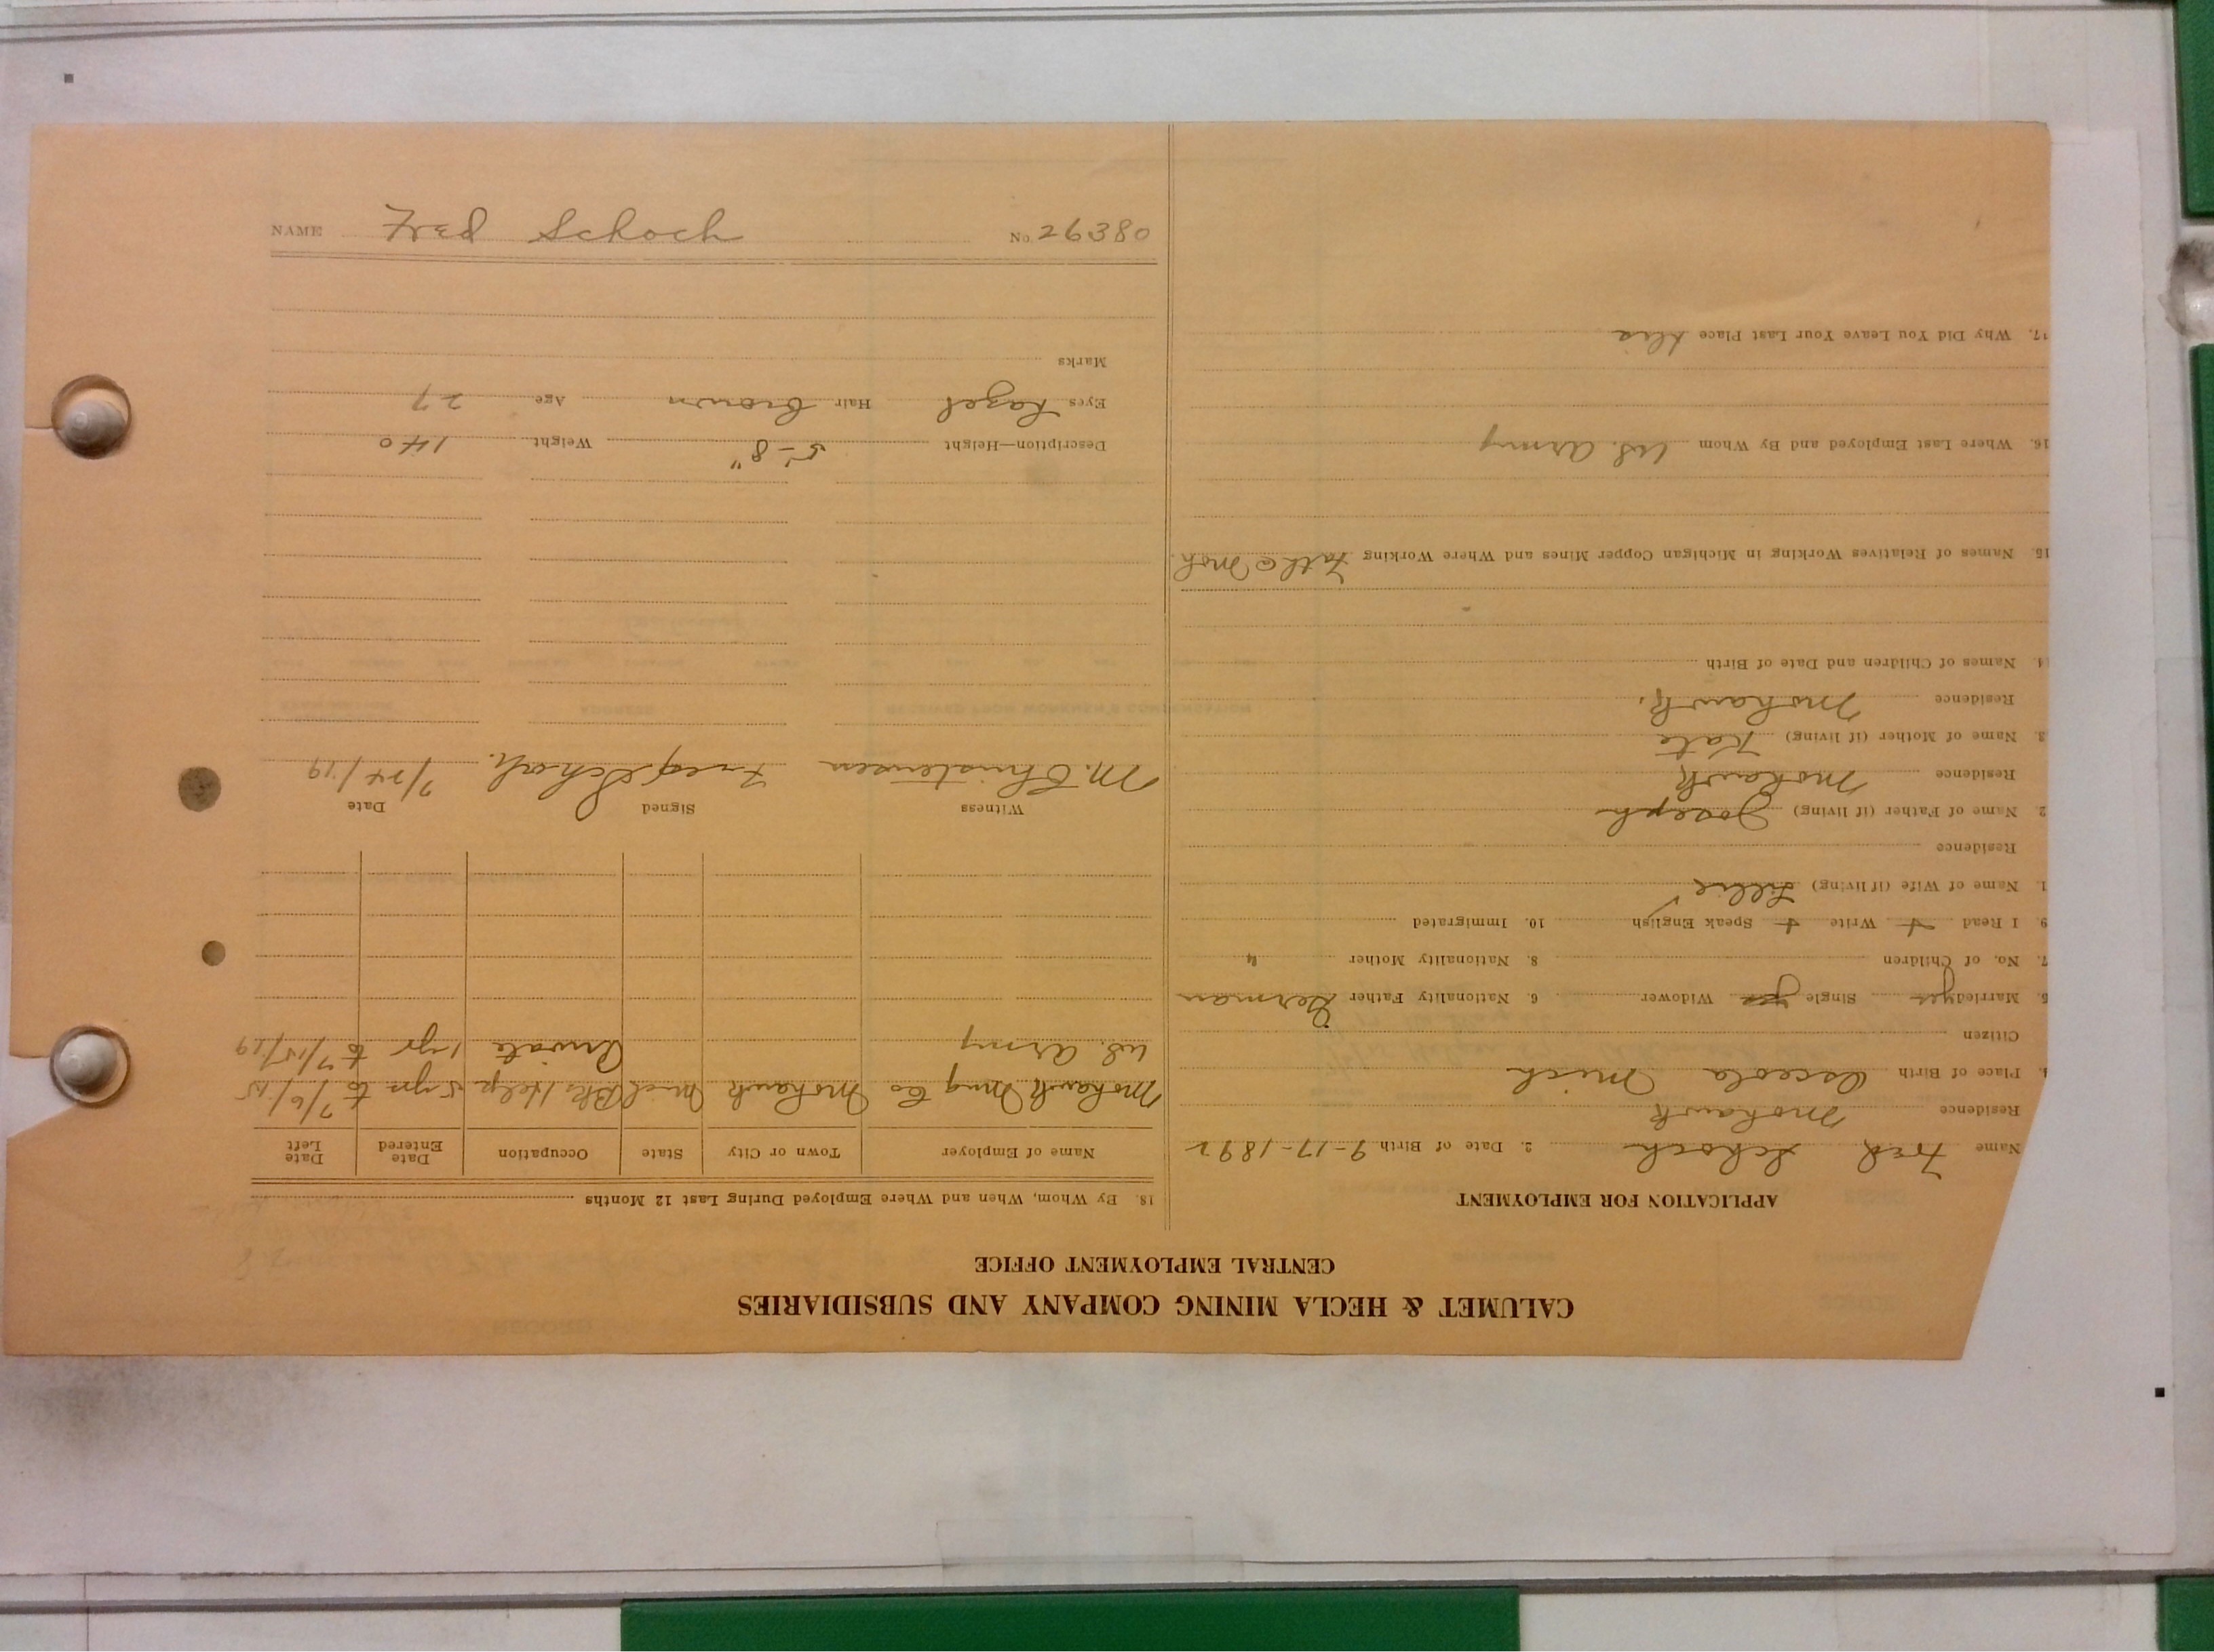 CALUMET & HECLA MINING COMPANY AND SUBSIDIARIES
CENTRAL EMPLOYMENT OFFICE
APPLICATION FOR EMPLOYMENT
Name Fred Schoch 2. Date of Birth 9-17-1892
Residence Mohawk
4. Place of Birth Osceola Mich
Citizen
5. Married yes Single yes Widower 6. Nationality Father German
7. No. of Children 8. Nationality Mother "
9. I Read + Write + Speak English 10. Immigrated
1. Name of Wife (if living) Lillie
Residence
2. Name of Father (if living) Joseph
Residence Mohawk
3. Name of Mother (if living) Kate
Residence Mohawk.
14. Names of Children and Date of Birth
15. Names of Relatives Working in Michigan Copper Mines and Where Working Fath @ Moh.
16. Where Last Employed and By Whom U.S. Army
17. Why Did You Leave Your Last Place Dis
18. By Whom, When and Where Employed During Last 12 Months
Name of Employer Town or City State Occupation Date Entered Date Left
Mohawk Mng Co Mohawk Mich Blk Help 5 yrs to 7/6/15
U.S. Army Private 1 yr to 7/15/19
Witness Signed Date
M. Christensen Fred Schoch. 7/24/19
Description—Height 5'-8" Weight 140
Eyes Hazel Hair Brown Age 27
Marks
NAME Fred Schoch No. 26380